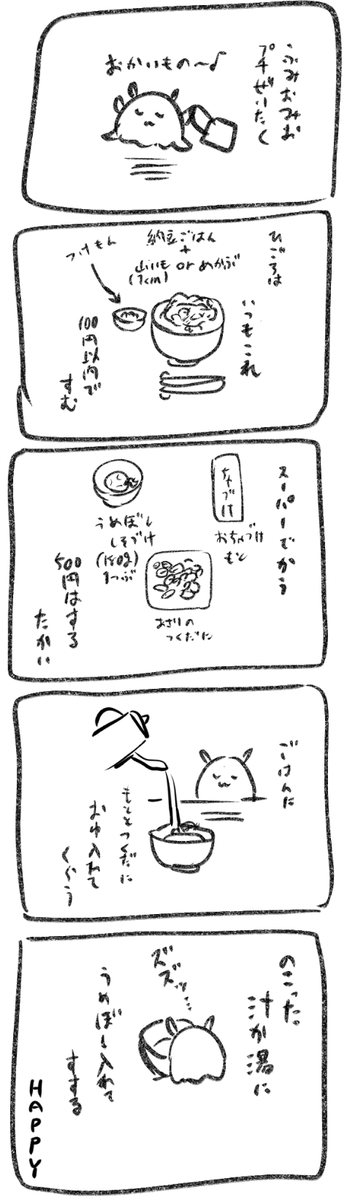 ふみおみお
プチぜいたく
おかいもの〜♪
ひごろは
納豆ごはん
+
山いも or めかぶ
(7cm)
いつもこれ
つけもん
100円以内で
すむ
スーパーでかう
ちゃづけ
おちゃづけ
もと
うめぼし
しそづけ
1つぶ
あさりの
つくだに
500円はする
たかい
ごはんに
もととつくだに
お湯入れて
くらう
のこった
汁か湯に
ズズッ…
うめぼし入れて
すする
HAPPY